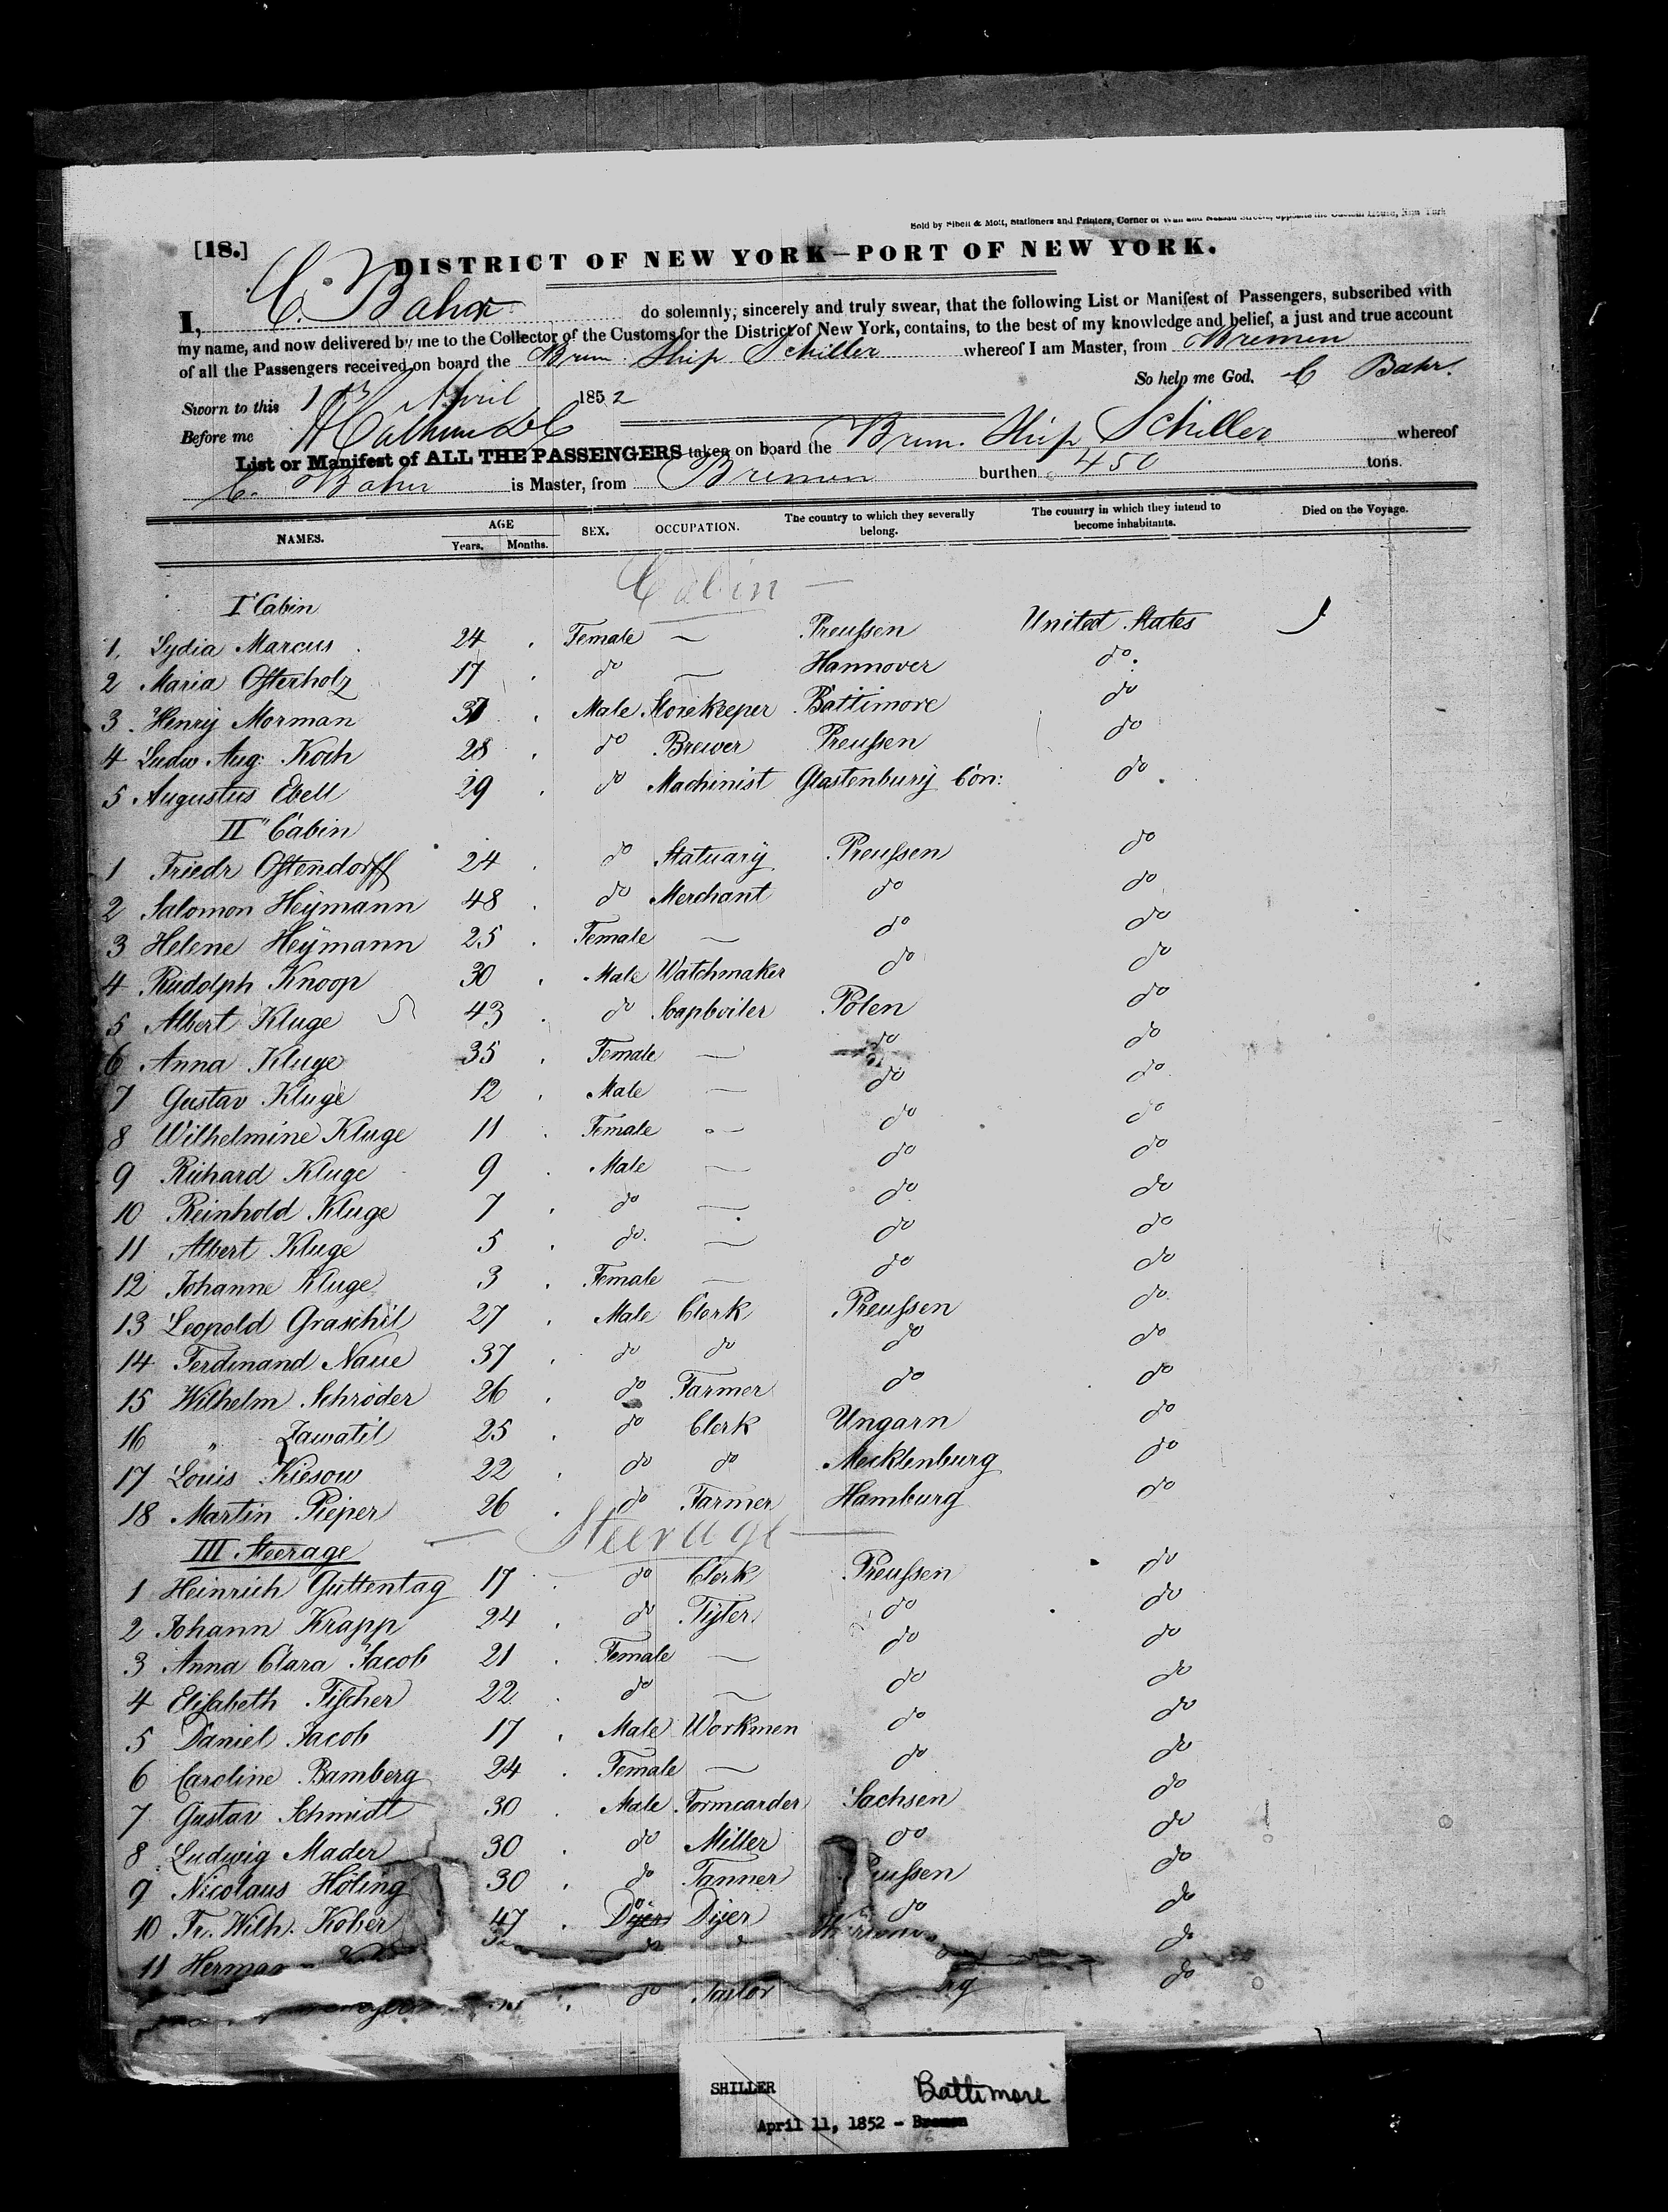 Sold by Sibell & Mott, Stationers and Printers, Corner of Wall and Nassau Streets, opposite the Custom House, New York
[18.]
DISTRICT OF NEW YORK—PORT OF NEW YORK.
I, C. Bahr do solemnly, sincerely and truly swear, that the following List or Manifest of Passengers, subscribed with
my name, and now delivered by me to the Collector of the Customs for the District of New York, contains, to the best of my knowledge and belief, a just and true account
of all the Passengers received on board the Brem. Ship Schiller whereof I am Master, from Bremen
So help me God. C Bahr.
Sworn to this April 1852
Before me
List or Manifest of ALL THE PASSENGERS taken on board the Brem. Ship Schiller whereof
C. Bahr is Master, from Bremen burthen 450 tons.
NAMES. AGE Years. Months. SEX. OCCUPATION. The country to which they severally belong. The country in which they intend to become inhabitants. Died on the Voyage.
Cabin —
I" Cabin
1. Lydia Marcus 24 . Female — Preußen United States
2 Maria Osterholz 17 . do — Hannover do
3 Henry Morman 37 . Male Storekeeper Baltimore do
4 Ludw. Aug: Koch 28 . do Brewer Preußen do
5 Augustus Ebell 29 . do Machinist Glastenbury Con: do
II" Cabin
1 Friedr Ostendorff 24 . do Statuary Preußen do
2 Salomon Heymann 48 . do Merchant do do
3 Helene Heymann 25 . Female — do do
4 Rudolph Knoop 30 . Male Watchmaker do do
5 Albert Kluge 43 . do Soapboiler Polen do
6 Anna Kluge 35 . Female — do do
7 Gustav Kluge 12 . Male — do do
8 Wilhelmine Kluge 11 . Female — do do
9 Richard Kluge 9 . Male — do do
10 Reinhold Kluge 7 . do — do do
11 Albert Kluge 5 . do — do do
12 Johanne Kluge 3 . Female — do do
13 Leopold Graschil 27 . Male Clerk Preußen do
14 Ferdinand Naue 37 . do do do do
15 Wilhelm Schröder 26 . do Farmer do do
16 " Zawatil 25 . do Clerk Ungarn do
17 Louis Kiesow 22 . do do Mecklenburg do
18 Martin Pieper 26 . do Farmer Hamburg do
— Steerage —
III Steerage
1 Heinrich Guttentag 17 . do Clerk Preußen do
2 Johann Krapp 24 . do Tyler do do
3 Anna Clara Jacob 21 . Female — do do
4 Elisabeth Fischer 22 . do — do do
5 Daniel Jacob 17 . Male Workmen do do
6 Caroline Bamberg 24 . Female — do do
7 Gustav Schmidt 30 . Male Formcarder Sachsen do
8 Ludwig Mader 30 . do Miller do do
9 Nicolaus Höling 30 . do Tanner eußen do
10 Fr. Wilh. Kober 47 . Dyer do Dyer do do
11 Herman do do
do Tailor rg do
SHILLER Baltimore
April 11, 1852 - Bremen
16